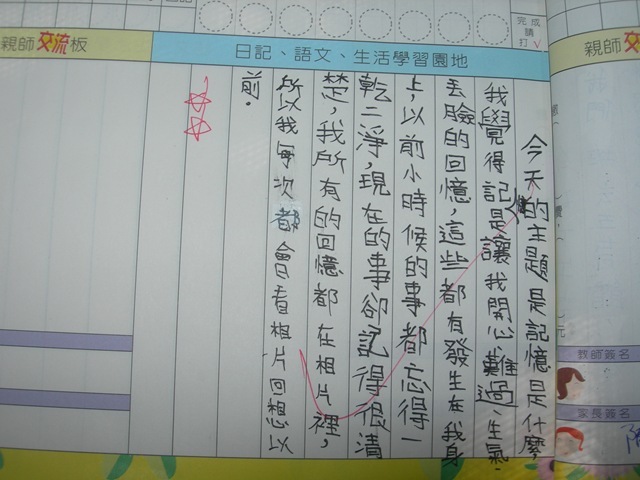 完成
請
打ˇ
日記、語文、生活學習園地
今天的主題是記憶是什麼,
我覺得記憶是讓我開心、難過、生氣、
丟臉的回憶,這些都有發生在我身
上,以前小時候的事都忘得一
乾二淨,現在的事卻記得很清
楚,我所有的回憶都在相片裡,
所以我每次都會看相片回想以
前.
親師交流板
親師交
元
教師簽名
家長簽名